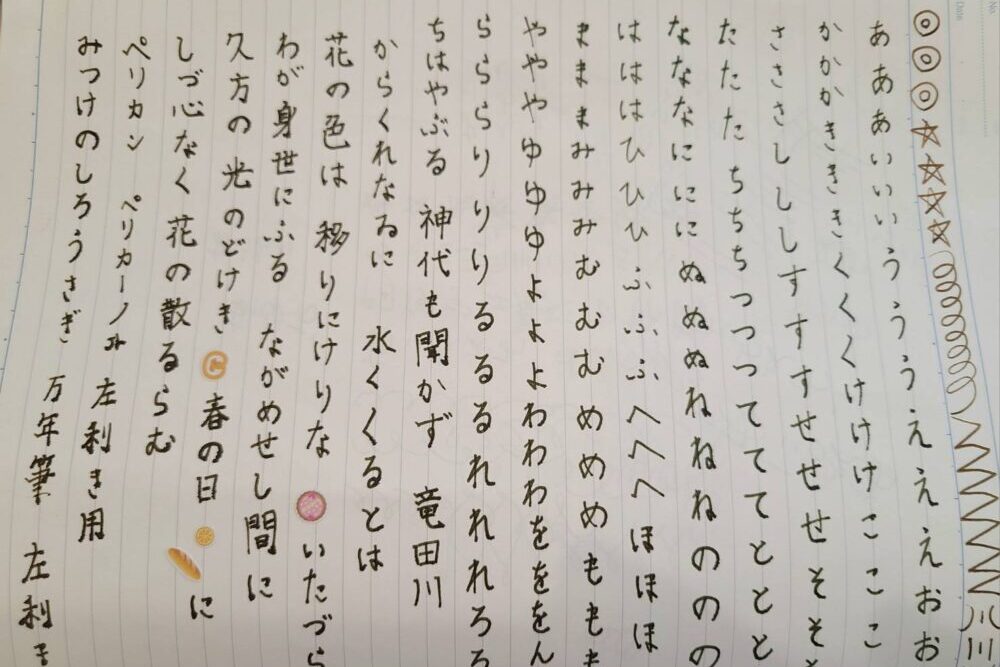 No.
Date
あああいいいうううえええおお
かかかきききくくくけけけこここ
さささしししすすすせせせそそそ
たたたちちちつつつてててととと
なななにににぬぬぬねねねののの
はははひひひふふふへへへほほほ
まままみみみむむむめめめももも
やややゆゆゆよよよわわわをををん
らららりりりるるるれれれろろ
ちはやぶる 神代も聞かず 竜田川
からくれなゐに 水くくるとは
花の色は 移りにけりな いたづら
わが身世にふる ながめせし間に
久方の光のどけき C 春の日 に
しづ心なく花の散るらむ
ペリカン ペリカーノJr 左利き用
みつけのしろうさぎ 万年筆 左利き